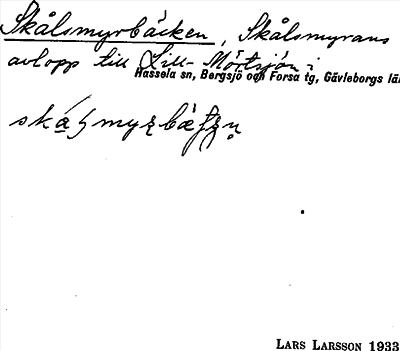 Skålsmyrbäcken, Skålsmyrans
avlopp till Lill-Mörtsjön i
Hassela sn, Bergsjö och Forsa tg, Gävleborgs lä
LARS LARSSON 1933